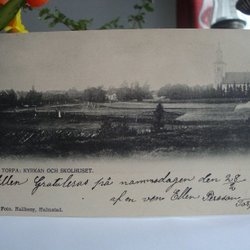 TORPA: KYRKAN OCH SKOLHUSET.
Ellen Gratuleras på namnsdagen den 28/2
af en vän Ellen Persson
Foto. Hallberg, Halmstad.